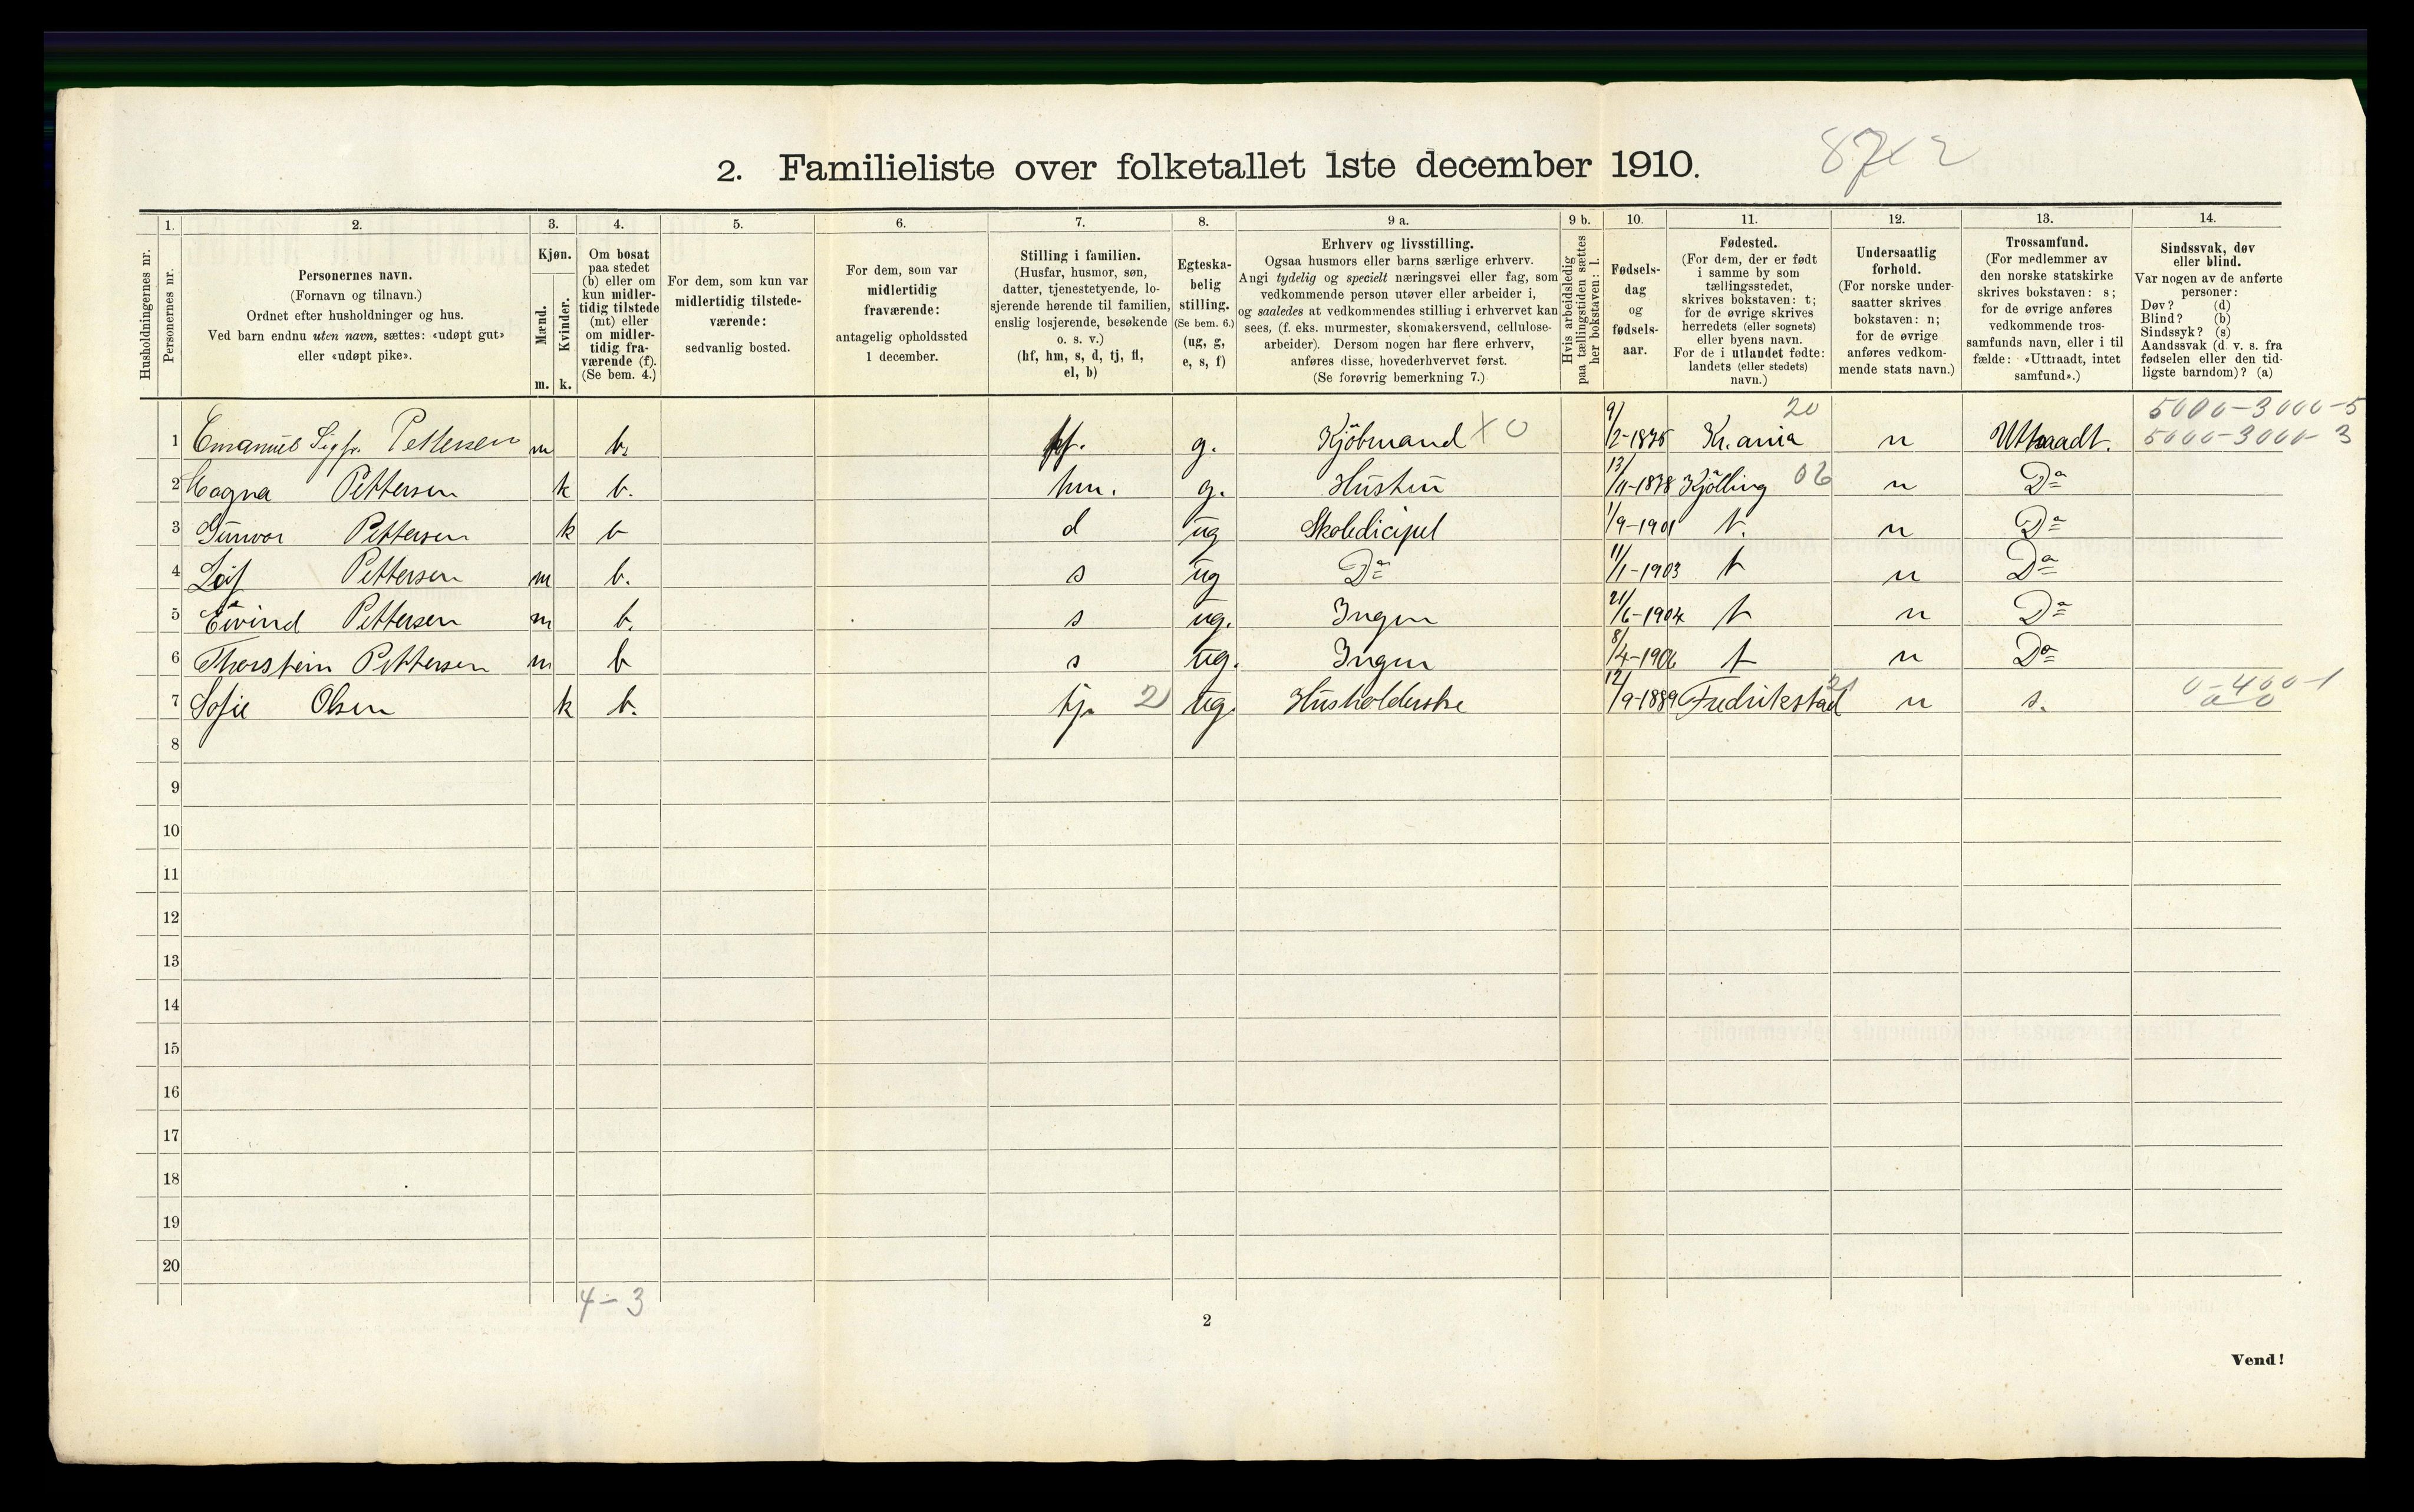 2. Familieliste over folketallet 1ste december 1910.
Husholdningernes nr.
1.
Personernes nr.
2.
Personernes navn.
(Fornavn og tilnavn.)
Ordnet efter husholdninger og hus.
Ved barn endnu uten navn, sættes: «udøpt gut»
eller «udøpt pike».
3.
Kjøn.
Mænd.
Kvinder.
m. k.
4.
Om bosat
paa stedet
(b) eller om
kun midler-
tidig tilstede
(mt) eller
om midler-
tidig fra-
værende (f).
(Se bem. 4.)
5.
For dem, som kun var
midlertidig tilstede-
værende:
sedvanlig bosted.
6.
For dem, som var
midlertidig
fraværende:
antagelig opholdssted
1 december.
7.
Stilling i familien.
(Husfar, husmor, søn,
datter, tjenestetyende, lo-
sjerende hørende til familien,
enslig losjerende, besøkende
o. s. v.)
(hf, hm, s, d, tj, fl,
el, b)
8.
Egteska-
belig
stilling.
(Se bem. 6.)
(ug, g,
e, s, f)
9 a.
Erhverv og livsstilling.
Ogsaa husmors eller barns særlige erhverv.
Angi tydelig og specielt næringsvei eller fag, som
vedkommende person utøver eller arbeider i,
og saaledes at vedkommendes stilling i erhvervet kan
sees, (f. eks. murmester, skomakersvend, cellulose-
arbeider). Dersom nogen har flere erhverv,
anføres disse, hovederhvervet først.
(Se forøvrig bemerkning 7.)
9 b.
Hvis arbeidsledig
paa tællingstiden sættes
her bokstaven: l.
10.
Fødsels-
dag
og
fødsels-
aar.
11.
Fødested.
(For dem, der er født
i samme by som
tællingsstedet,
skrives bokstaven: t;
for de øvrige skrives
herredets (eller sognets)
eller byens navn.
For de i utlandet fødte:
landets (eller stedets)
navn.)
12.
Undersaatlig
forhold.
(For norske under-
saatter skrives
bokstaven: n;
for de øvrige
anføres vedkom-
mende stats navn.)
13.
Trossamfund.
(For medlemmer av
den norske statskirke
skrives bokstaven: s;
for de øvrige anføres
vedkommende tros-
samfunds navn, eller i til
fælde: «Uttraadt, intet
samfund».)
14.
Sindssvak, døv
eller blind.
Var nogen av de anførte
personer:
Døv? (d)
Blind? (b)
Sindssyk? (s)
Aandssvak (d. v. s. fra
fødselen eller den tid-
ligste barndom)? (a)
20 5000-3000-5
1 Emanuel Sigfr. Pettersen m b. hf. g. Kjöbmand X 0 9/2-1875 Kr.ania n Uttraadt. 5000-3000-3
2 Magna Pettersen k b. hm. g. Hustru 13/11-1878 Kjölling 06 n Do
3 Gunvor Pettersen k b d ug Skoledicipel 1/9-1901 t. n Do
4 Leif Pettersen m b. s ug Do 11/1-1903 t n Do
5 Eivind Pettersen m b. s ug. Ingen 21/6-1904 t n Do
6 Thorstein Pettersen m b s ug. Ingen 8/4-1906 t n Do
7 Sofie Olsen k b. tj. 2) ug. Husholderske 12/9-1889 Fredrikstad n s. 0-400-1
0-0
8
9
10
11
12
13
14
15
16
17
18
19
20
4-3
2
Vend!